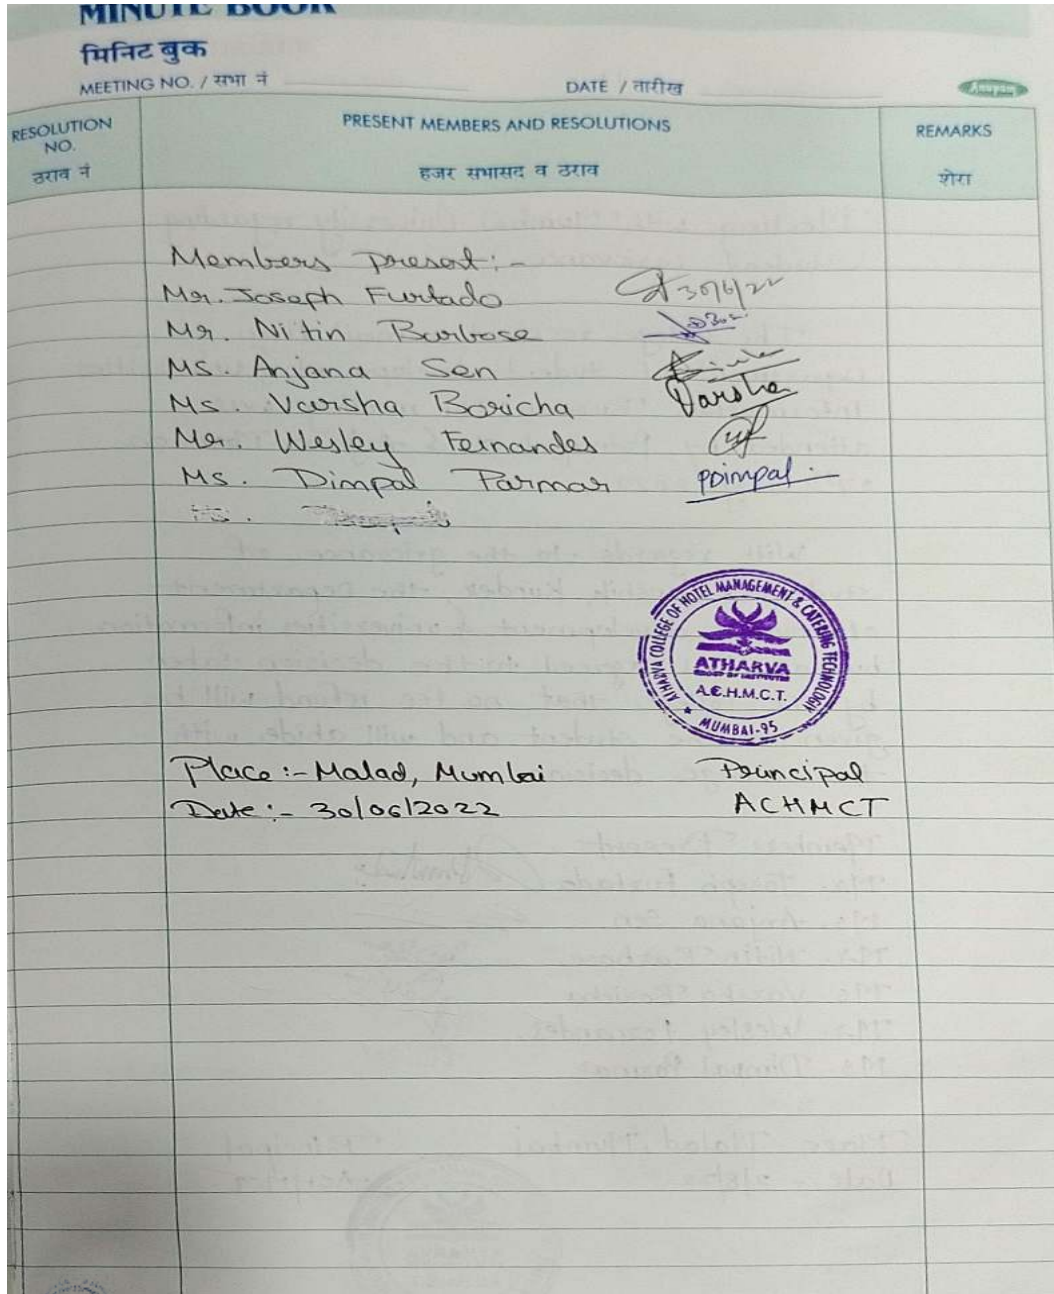 MINUTE BOOK
मिनिट बुक
MEETING NO. / सभा नं
DATE / तारीख
Anupam
RESOLUTION NO.
ठराव नं
PRESENT MEMBERS AND RESOLUTIONS
हजर सभासद व ठराव
REMARKS
शेरा
Members Present:-
Mr. Joseph Furtado 30/6/22
Mr. Nitin Barbose
Ms. Anjana Sen
Ms. Varsha Boricha Varsha
Mr. Wesley Fernandes
Ms. Dimpal Parmar PDimpal.
ATHARVA COLLEGE OF HOTEL MANAGEMENT & CATERING TECHNOLOGY
ATHARVA
GROUP OF INSTITUTES
A.C.H.M.C.T.
★ MUMBAI-95 ★
Place :- Malad, Mumbai Principal
Date :- 30/06/2022 ACHMCT